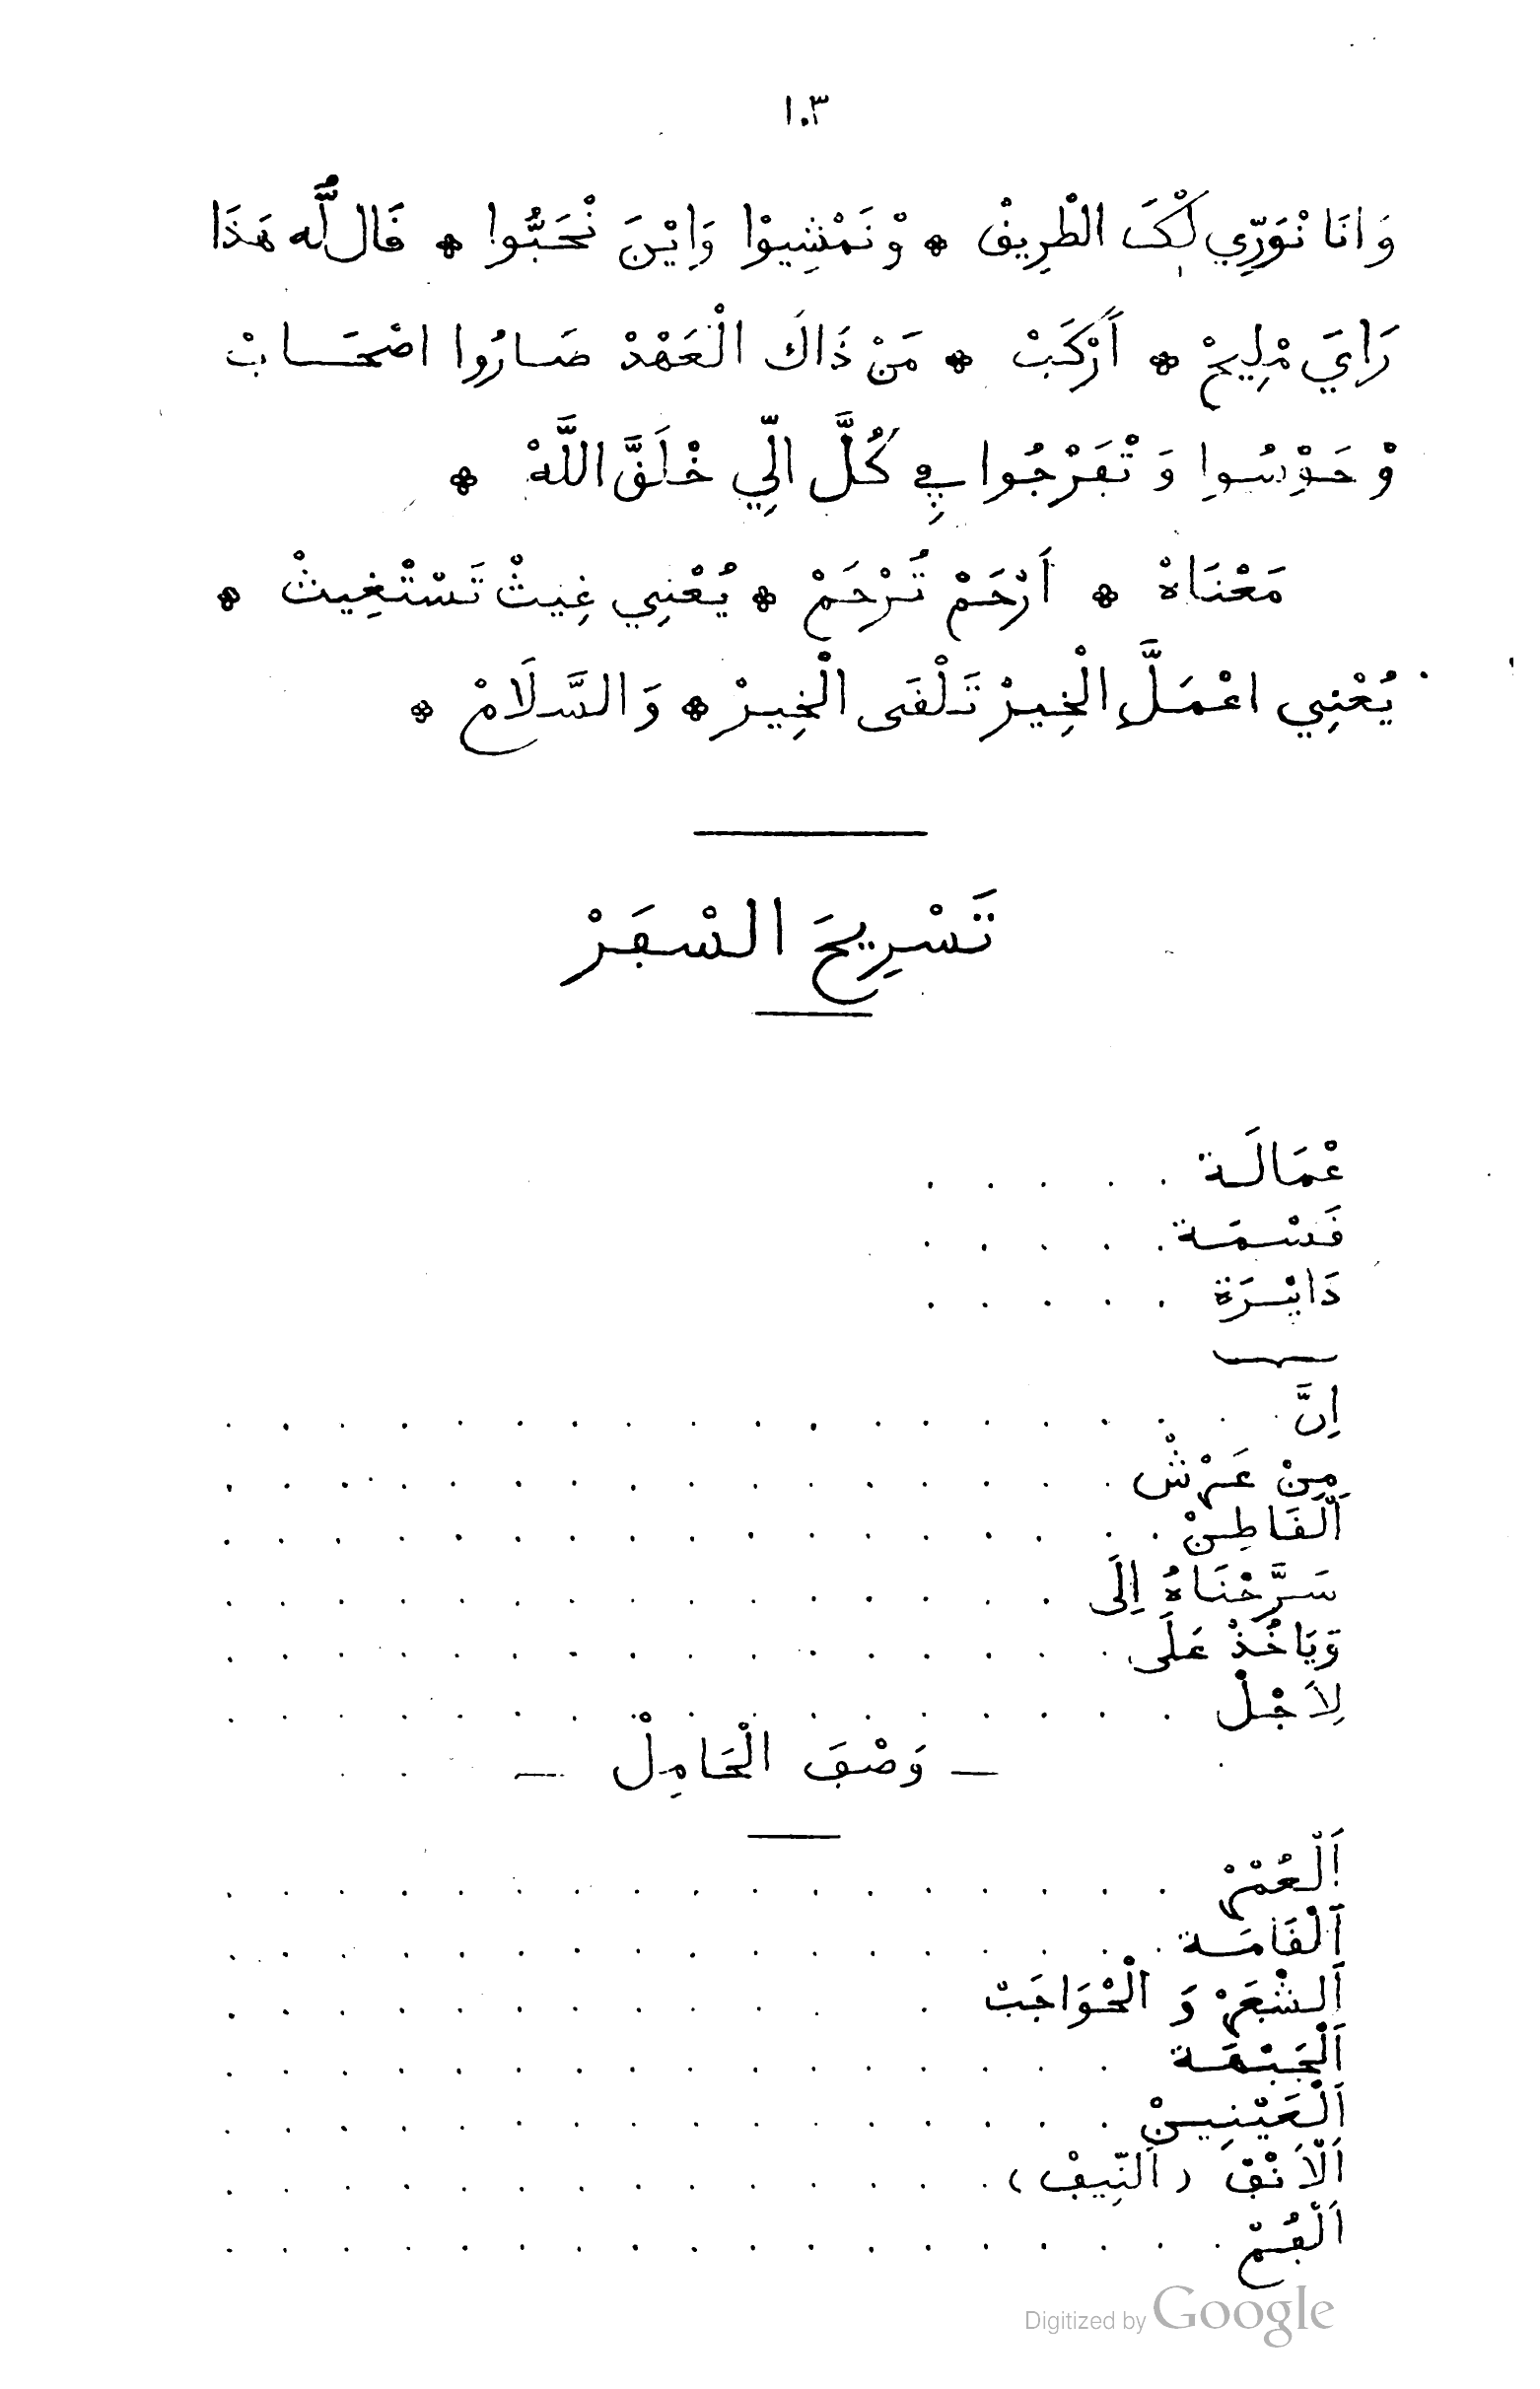 ١٠٣
وَانَا نْوَرِّي لْكَ الطْرِيقْ * وْنَمْشِيوْا وَايْنَ نْحَبُّوا * قَال لُّه هَذَا
رَايَ مْلِيحْ * أَرْكَبْ * مَنْ ذَاكَ الْعَهْدْ صَارُوا اصْحَابْ
وْ حَوْسُوا وَ تْفَرْجُوا فِي كُلَّ الِّي خْلَقَّ اللَّهْ *
مَعْنَاهْ * أَرْحَمْ تُرْحَمْ * يُعْنِي غِيثْ تَسْتْغِيثْ *
يُعْنِي اعْمَلَّ الْخِيرْ تَلْقَى الْخِيرْ * وَالسَّلَامْ *
تَسْرِيحَ السْفَرْ
عْمَالَة . . . . .
قَسْمَة . . . . .
دَايْرَة . . . . .
إِنَّ . . . . . . . . . . . . . . . . . .
مِنْ عَرْشْ . . . . . . . . . . . . . . . .
أَلْقَاطِنْ . . . . . . . . . . . . . . . . .
سَرَّحْنَاهُ إِلَى . . . . . . . . . . . . . . .
وَيَاخُذْ عَلَى . . . . . . . . . . . . . . . .
لِأَجْلْ . . . . . . . . . . . . . . . . .
— وَصْفَ الْحَامِلْ —
أَلْعُمْرْ . . . . . . . . . . . . . . . . .
أَلْقَامَة . . . . . . . . . . . . . . . . .
أَلشْعَرْ وَ الْحْوَاجَبْ . . . . . . . . . . . .
أَلْجَبْهَة . . . . . . . . . . . . . . . .
أَلْعَيْنِينْ . . . . . . . . . . . . . . . .
أَلْأَنْفْ (أَلنِّيفْ) . . . . . . . . . . . . . .
أَلْفُمْ . . . . . . . . . . . . . . . . . .
Digitized by Google